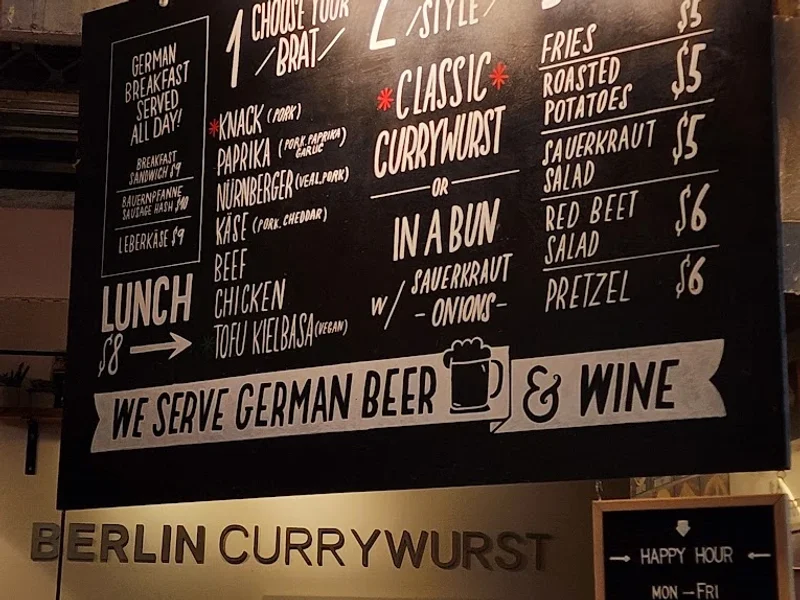 GERMAN
BREAKFAST
SERVED
ALL DAY!
BREAKFAST
SANDWICH $9
BAUERNPFANNE
SAUSAGE HASH $10
LEBERKÄSE $9
LUNCH
$8
1 CHOOSE YOUR
BRAT
*KNACK (PORK)
PAPRIKA (PORK, PAPRIKA,
GARLIC)
NÜRNBERGER (VEAL, PORK)
KÄSE (PORK, CHEDDAR)
BEEF
CHICKEN
TOFU KIELBASA (VEGAN)
2
STYLE
*CLASSIC*
CURRYWURST
OR
IN A BUN
W/ SAUERKRAUT
-ONIONS-
FRIES $5
ROASTED
POTATOES $5
SAUERKRAUT
SALAD $5
RED BEET
SALAD $6
PRETZEL $6
WE SERVE GERMAN BEER & WINE
BERLIN CURRYWURST
HAPPY HOUR
MON – FRI